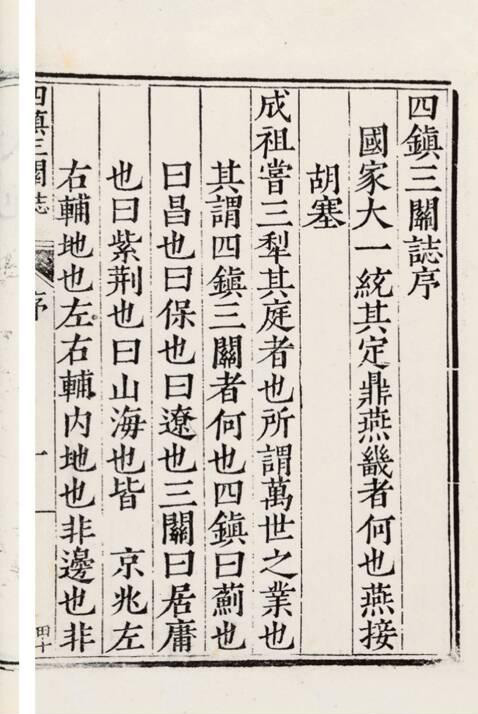 四鎮三關誌序
國家大一統其定鼎燕畿者何也燕接
胡塞
成祖嘗三犁其庭者也所謂萬世之業也
其謂四鎮三關者何也四鎮曰薊也
曰昌也曰保也曰遼也三關曰居庸
也曰紫荆也曰山海也皆 京兆左
右輔地也左右輔內地也非邊也非
四鎮三關誌 序 一